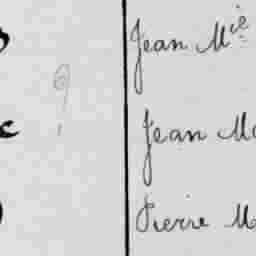 Jean Mie
Jean M
Pierre M